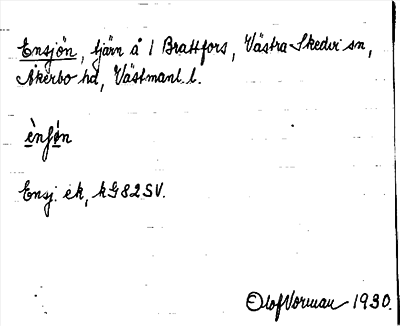 Ensjön, tjärn å 1 Brattfors, Västra Skedvi sn,
Åkerbo hd, Västmanl. l.
Ensj. ek, kG82SV.
Olof Vorman 1930.